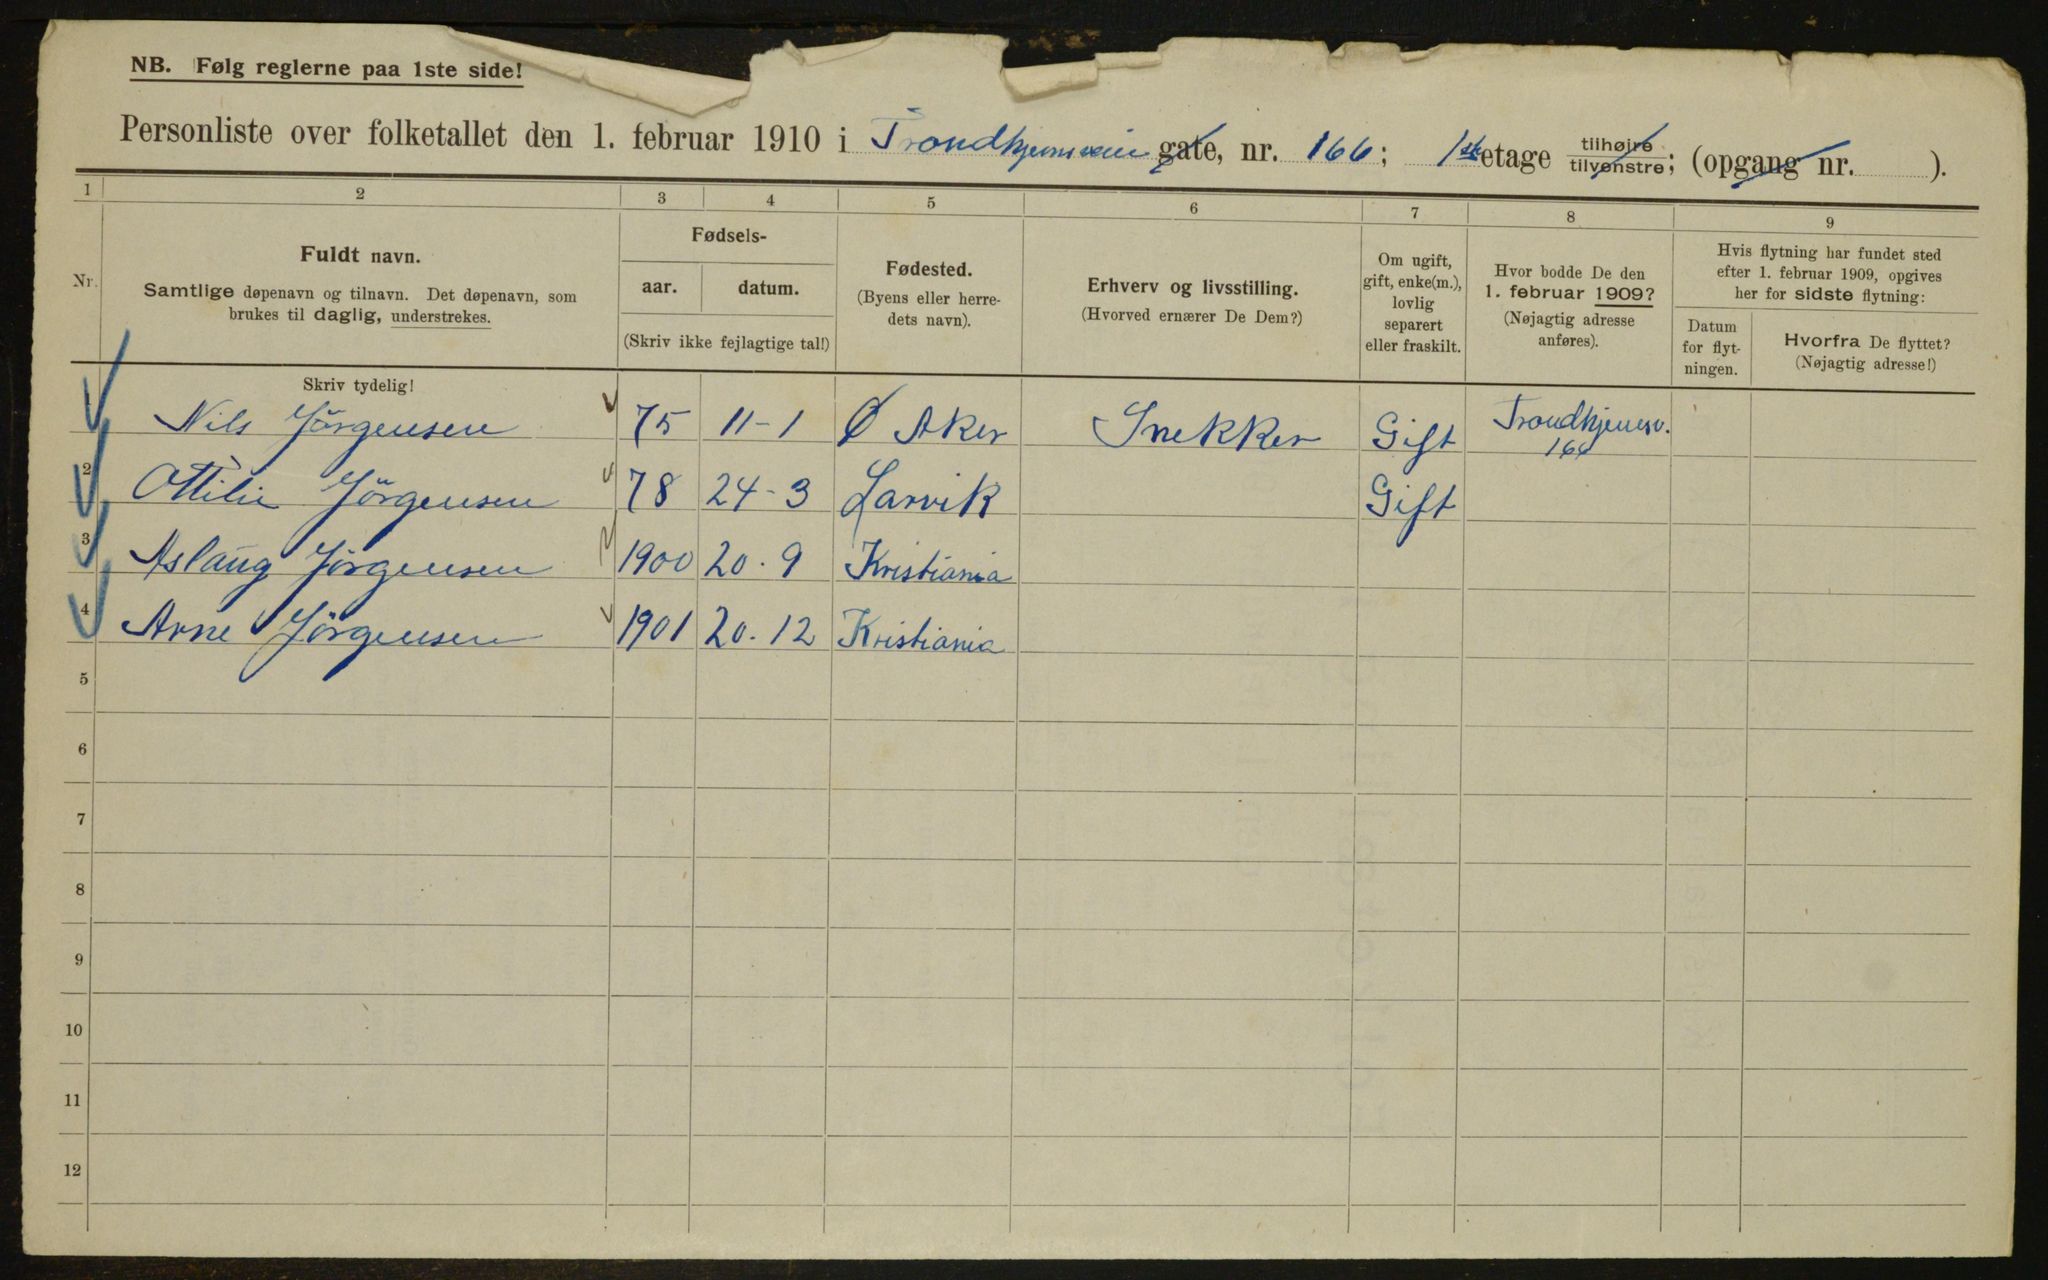 NB. Følg reglerne paa 1ste side!
Personliste over folketallet den 1. februar 1910 i Trondhjemsveien gate, nr. 166; 1ste etage tilhøire tilvenstre; (opgang nr. ).
1 2 3 4 5 6 7 8 9
Nr.
Fuldt navn.
Samtlige døpenavn og tilnavn. Det døpenavn, som
brukes til daglig, understrekes.
Fødsels-
aar. datum.
(Skriv ikke fejlagtige tal!)
Fødested.
(Byens eller herre-
dets navn).
Erhverv og livsstilling.
(Hvorved ernærer De Dem?)
Om ugift,
gift, enke(m.),
lovlig
separert
eller fraskilt.
Hvor bodde De den
1. februar 1909?
(Nøjagtig adresse
anføres).
Hvis flytning har fundet sted
efter 1. februar 1909, opgives
her for sidste flytning:
Datum
for flyt-
ningen.
Hvorfra De flyttet?
(Nøjagtig adresse!)
Skriv tydelig!
Nils Jörgensen 75 11-1 Ø Aker Snekker Gift Trondhjemsv.
166
2 Ottilie Jörgensen 78 24-3 Larvik Gift
3 Aslaug Jörgensen 1900 20.9 Kristiania
4 Arne Jörgensen 1901 20.12 Kristiania
5
6
7
8
9
10
11
12